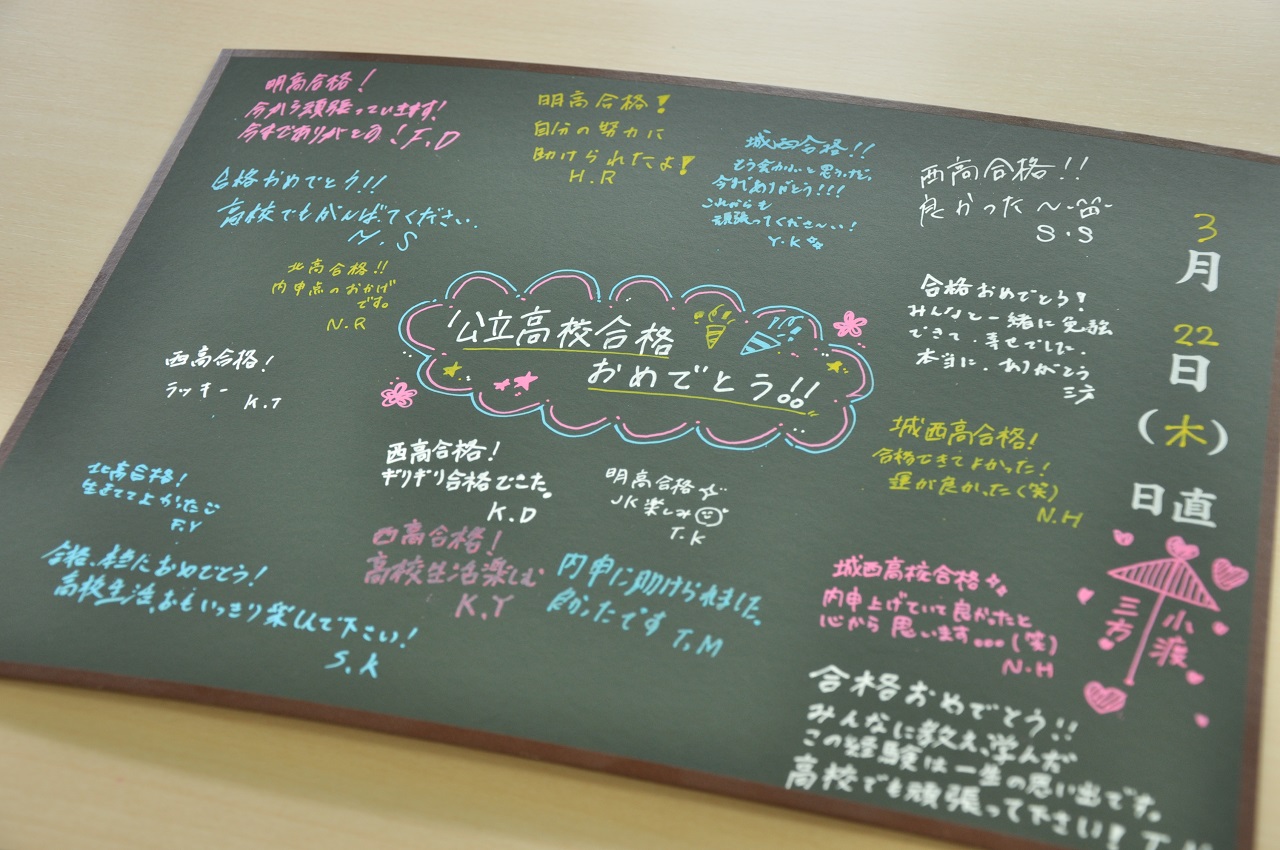 明高合格!
今から頑張っていきます!
今までありがとう!F.D
合格おめでとう!!
高校でもがんばてください.
M.S
北高合格!!
内申点のおかげ
です。
N.R
西高合格!
ラッキー
K.T
北高合格!
生きててよかった
F.Y
合格、本当におめでとう!
高校生活、おもいっきり楽しんで下さい!
S.K
明高合格!
自分の努力に
助けられたよ!
H.R
城西合格!!
今までありがとう!!!
これからも
頑張ってくださ〜い!
Y.K
西高合格!!
良かった〜
S.S
公立高校合格
おめでとう!!
合格おめでとう!
みんなと一緒に勉強
できて、幸せでした.
本当に、ありがとう
三方
西高合格!
ギリギリ合格でした。
K.D
明高合格
JK楽しみ
T.K
西高合格!
高校生活楽しむ
K.Y
内申に助けられました。
良かったです T.M
城西高合格!
合格できてよかった!
運が良かった(笑)
N.H
城西高校合格
内申上げていて良かったと
心から思います。。。(笑)
N.H
合格おめでとう!!
みんなに教え、学んだ
この経験は一生の思い出です。
高校でも頑張って下さい!
3
月
22
日
(木)
日直
小渡
三方